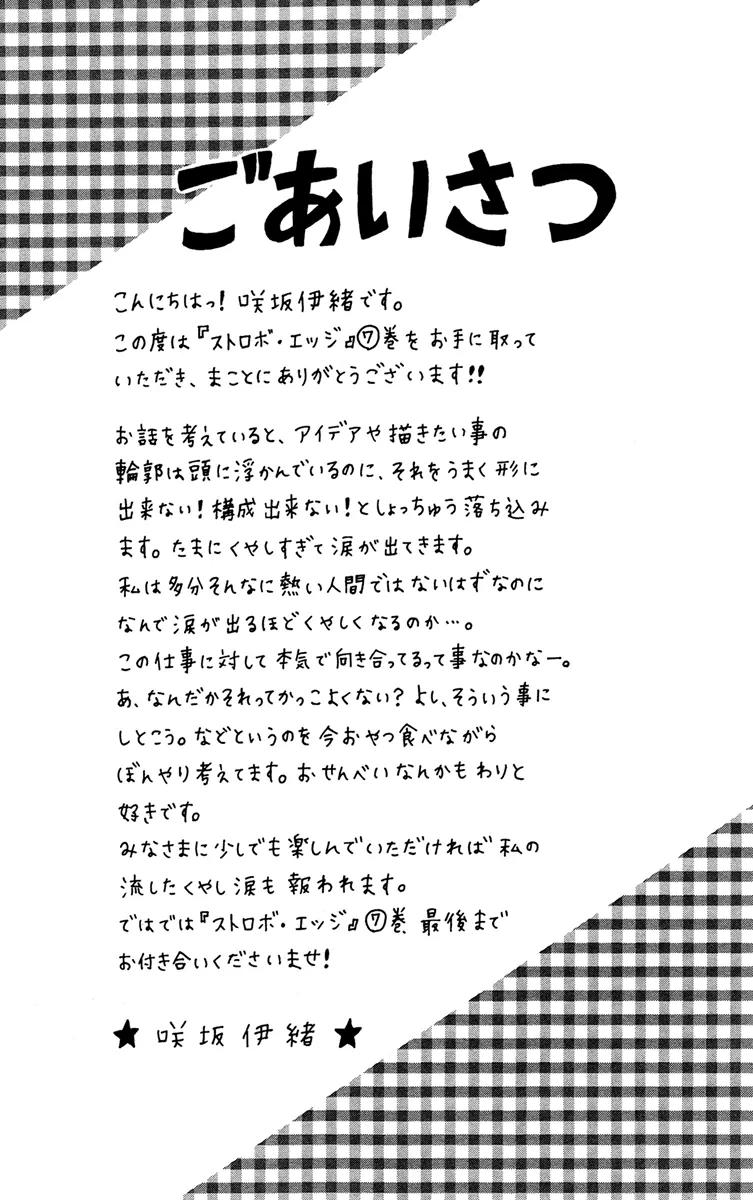 ごあいさつ
こんにちはっ！咲坂伊緒です。
この度は『ストロボ・エッジ』⑦巻を お手に取って
いただき、まことにありがとうございます!!
お話を考えていると、アイデアや描きたい事の
輪郭は頭に浮かんでいるのに、それをうまく形に
出来ない！構成出来ない！としょっちゅう落ち込み
ます。たまにくやしすぎて涙が出てきます。
私は多分そんなに熱い人間ではないはずなのに
なんで涙が出るほどくやしくなるのか…。
この仕事に対して本気で向き合ってるって事なのかなー。
あ、なんだかそれってかっこよくない？よし、そういう事に
しとこう。などというのを今おやつ食べながら
ぼんやり考えてます。おせんべいなんかもわりと
好きです。
みなさまに少しでも楽しんでいただければ私の
流したくやし涙も報われます。
ではでは『ストロボ・エッジ』⑦巻 最後まで
お付き合いくださいませ！
★ 咲坂伊緒 ★